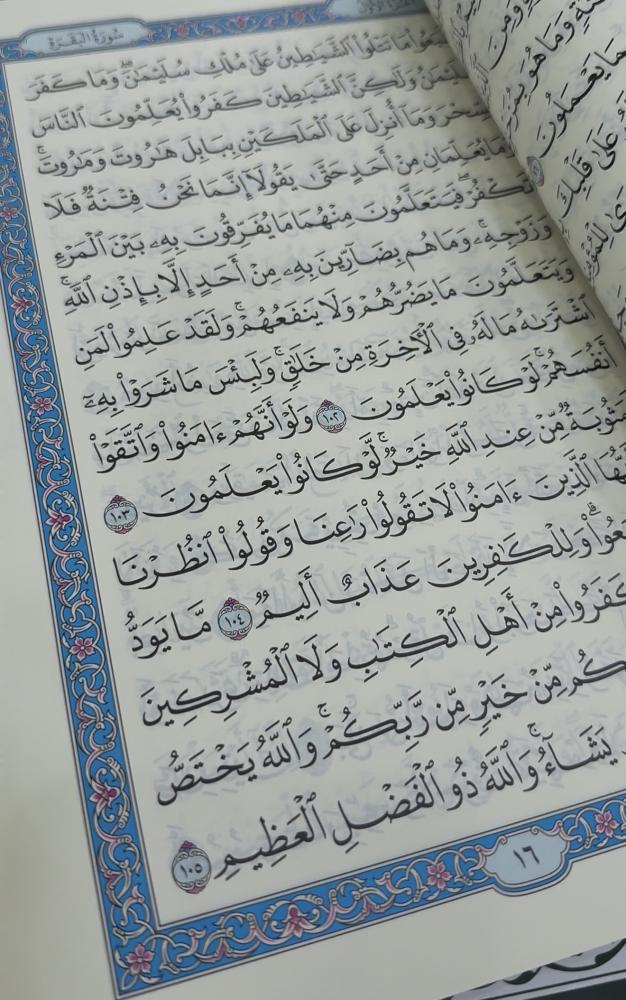 سُورَةُ البَقَرَةِ
مَا تَتْلُوا۟ ٱلشَّيَـٰطِينُ عَلَىٰ مُلْكِ سُلَيْمَـٰنَ ۖ وَمَا كَفَرَ
وَلَـٰكِنَّ ٱلشَّيَـٰطِينَ كَفَرُوا۟ يُعَلِّمُونَ ٱلنَّاسَ
وَمَآ أُنزِلَ عَلَى ٱلْمَلَكَيْنِ بِبَابِلَ هَـٰرُوتَ وَمَـٰرُوتَ ۚ
يُعَلِّمَانِ مِنْ أَحَدٍ حَتَّىٰ يَقُولَآ إِنَّمَا نَحْنُ فِتْنَةٌ فَلَا
تَكْفُرْ ۖ فَيَتَعَلَّمُونَ مِنْهُمَا مَا يُفَرِّقُونَ بِهِۦ بَيْنَ ٱلْمَرْءِ
وَزَوْجِهِۦ ۚ وَمَا هُم بِضَآرِّينَ بِهِۦ مِنْ أَحَدٍ إِلَّا بِإِذْنِ ٱللَّهِ ۚ
وَيَتَعَلَّمُونَ مَا يَضُرُّهُمْ وَلَا يَنفَعُهُمْ ۚ وَلَقَدْ عَلِمُوا۟ لَمَنِ
ٱشْتَرَىٰهُ مَا لَهُۥ فِى ٱلْـَٔاخِرَةِ مِنْ خَلَـٰقٍ ۚ وَلَبِئْسَ مَا شَرَوْا۟ بِهِۦٓ
أَنفُسَهُمْ ۚ لَوْ كَانُوا۟ يَعْلَمُونَ ١٠٢ وَلَوْ أَنَّهُمْ ءَامَنُوا۟ وَٱتَّقَوْا۟
لَمَثُوبَةٌ مِّنْ عِندِ ٱللَّهِ خَيْرٌ ۖ لَّوْ كَانُوا۟ يَعْلَمُونَ ١٠٣
ٱلَّذِينَ ءَامَنُوا۟ لَا تَقُولُوا۟ رَٰعِنَا وَقُولُوا۟ ٱنظُرْنَا
وَلِلْكَـٰفِرِينَ عَذَابٌ أَلِيمٌ ١٠٤ مَّا يَوَدُّ
كَفَرُوا۟ مِنْ أَهْلِ ٱلْكِتَـٰبِ وَلَا ٱلْمُشْرِكِينَ
مِّنْ خَيْرٍ مِّن رَّبِّكُمْ ۗ وَٱللَّهُ يَخْتَصُّ
يَشَآءُ ۚ وَٱللَّهُ ذُو ٱلْفَضْلِ ٱلْعَظِيمِ ١٠٥
١٦
وَمَا هُوَ
يَعْمَلُونَ
عَلَىٰ قَلْبِكَ